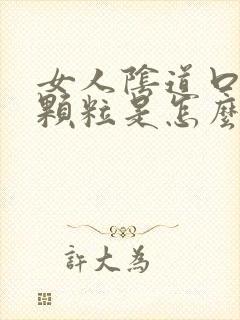 女人陰道口
顆粒是怎麼
許大為